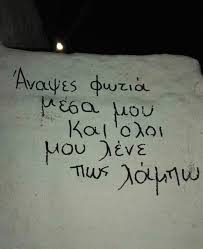 Άναψες φωτιά
μέσα μου
Και όλοι
μου λένε
πως λάμπω